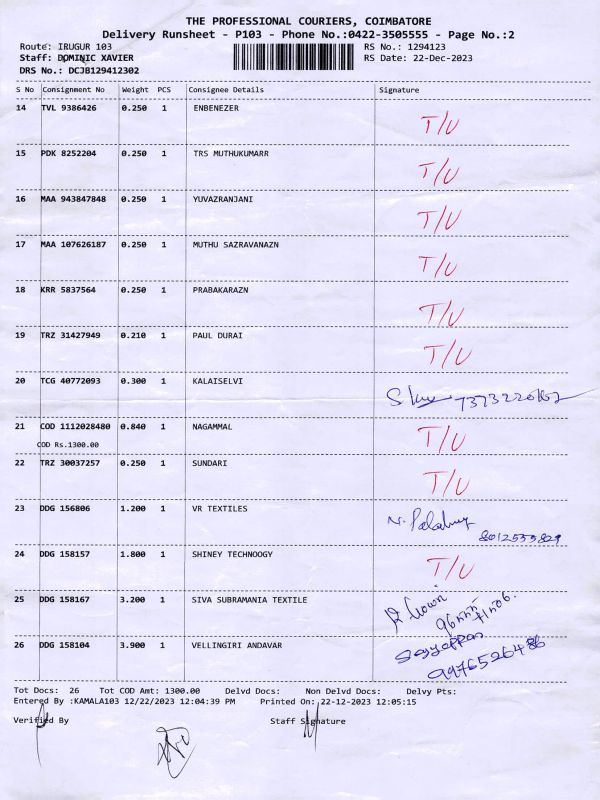 THE PROFESSIONAL COURIERS, COIMBATORE
Delivery Runsheet - P103 - Phone No.:0422-3505555 - Page No.:2
Route: IRUGUR 103 RS No.: 1294123
Staff: DOMINIC XAVIER RS Date: 22-Dec-2023
DRS No.: DCJB129412302
S No Consignment No Weight PCS Consignee Details Signature
14 TVL 9386426 0.250 1 ENBENEZER T/U
15 PDK 8252204 0.250 1 TRS MUTHUKUMARR T/U
16 MAA 943847848 0.250 1 YUVAZRANJANI T/U
17 MAA 107626187 0.250 1 MUTHU SAZRAVANAZN T/U
18 KRR 5837564 0.250 1 PRABAKARAZN T/U
19 TRZ 31427949 0.210 1 PAUL DURAI T/U
20 TCG 40772093 0.300 1 KALAISELVI
21 COD 1112028480 0.840 1 NAGAMMAL T/U
COD Rs.1300.00
22 TRZ 30037257 0.250 1 SUNDARI T/U
23 DDG 156806 1.200 1 VR TEXTILES
24 DDG 158157 1.800 1 SHINEY TECHNOOGY T/U
25 DDG 158167 3.200 1 SIVA SUBRAMANIA TEXTILE
26 DDG 158104 3.900 1 VELLINGIRI ANDAVAR 9976526486
Tot Docs: 26 Tot COD Amt: 1300.00 Delvd Docs: Non Delvd Docs: Delvy Pts:
Entered By :KAMALA103 12/22/2023 12:04:39 PM Printed On: 22-12-2023 12:05:15
Verified By Staff Signature